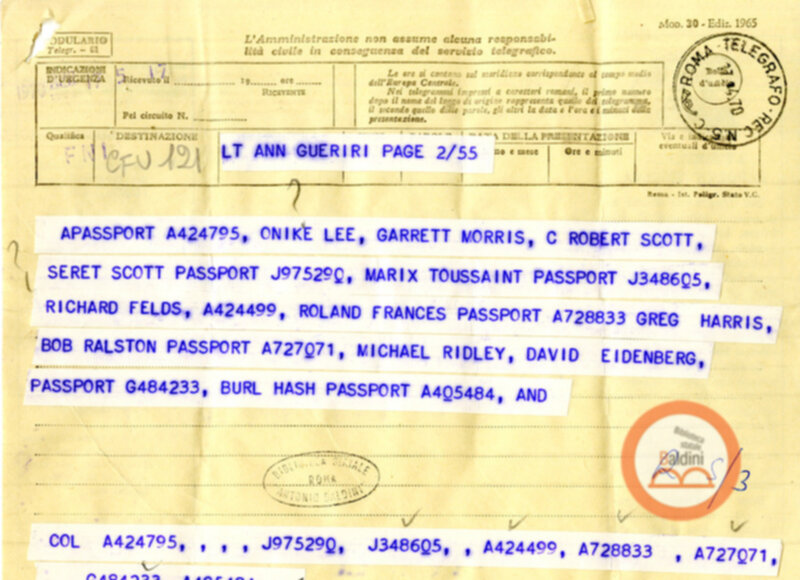 MODULARIO
Telegr. - 61
L'Amministrazione non assume alcuna responsabi-
lità civile in conseguenza del servizio telegrafico.
Mod. 30 - Ediz. 1965
INDICAZIONI
D'URGENZA
Ricevuto il 19 ore
RICEVENTE
Pel circuito N.
Le ore si contano sul meridiano corrispondente al tempo medio
dell'Europa Centrale.
Nei telegrammi impressi a caratteri romani, il primo numero
dopo il nome del luogo di origine rappresenta quello del telegramma,
il secondo quello delle parole, gli altri la data e l'ora e i minuti della
presentazione.
ROMA-TELEGRAFO-REC. N.5-C
Qualifica
DESTINAZIONE
DATA DELLA PRESENTAZIONE
Ore e minuti
CFU 121
LT ANN GUERIRI PAGE 2/55
Roma - Ist. Poligr. Stato V.C.
?
APASSPORT A424795, ONIKE LEE, GARRETT MORRIS, C ROBERT SCOTT,
SERET SCOTT PASSPORT J975290, MARIX TOUSSAINT PASSPORT J348605,
RICHARD FELDS, A424499, ROLAND FRANCES PASSPORT A728833 GREG HARRIS,
BOB RALSTON PASSPORT A727071, MICHAEL RIDLEY, DAVID EIDENBERG,
PASSPORT G484233, BURL HASH PASSPORT A405484, AND
Biblioteca
statale
Baldini
BIBLIOTECA STATALE
ROMA
ANTONIO BALDINI
COL A424795, , , , J975290, J348605, , A424499, A728833 , A727071,